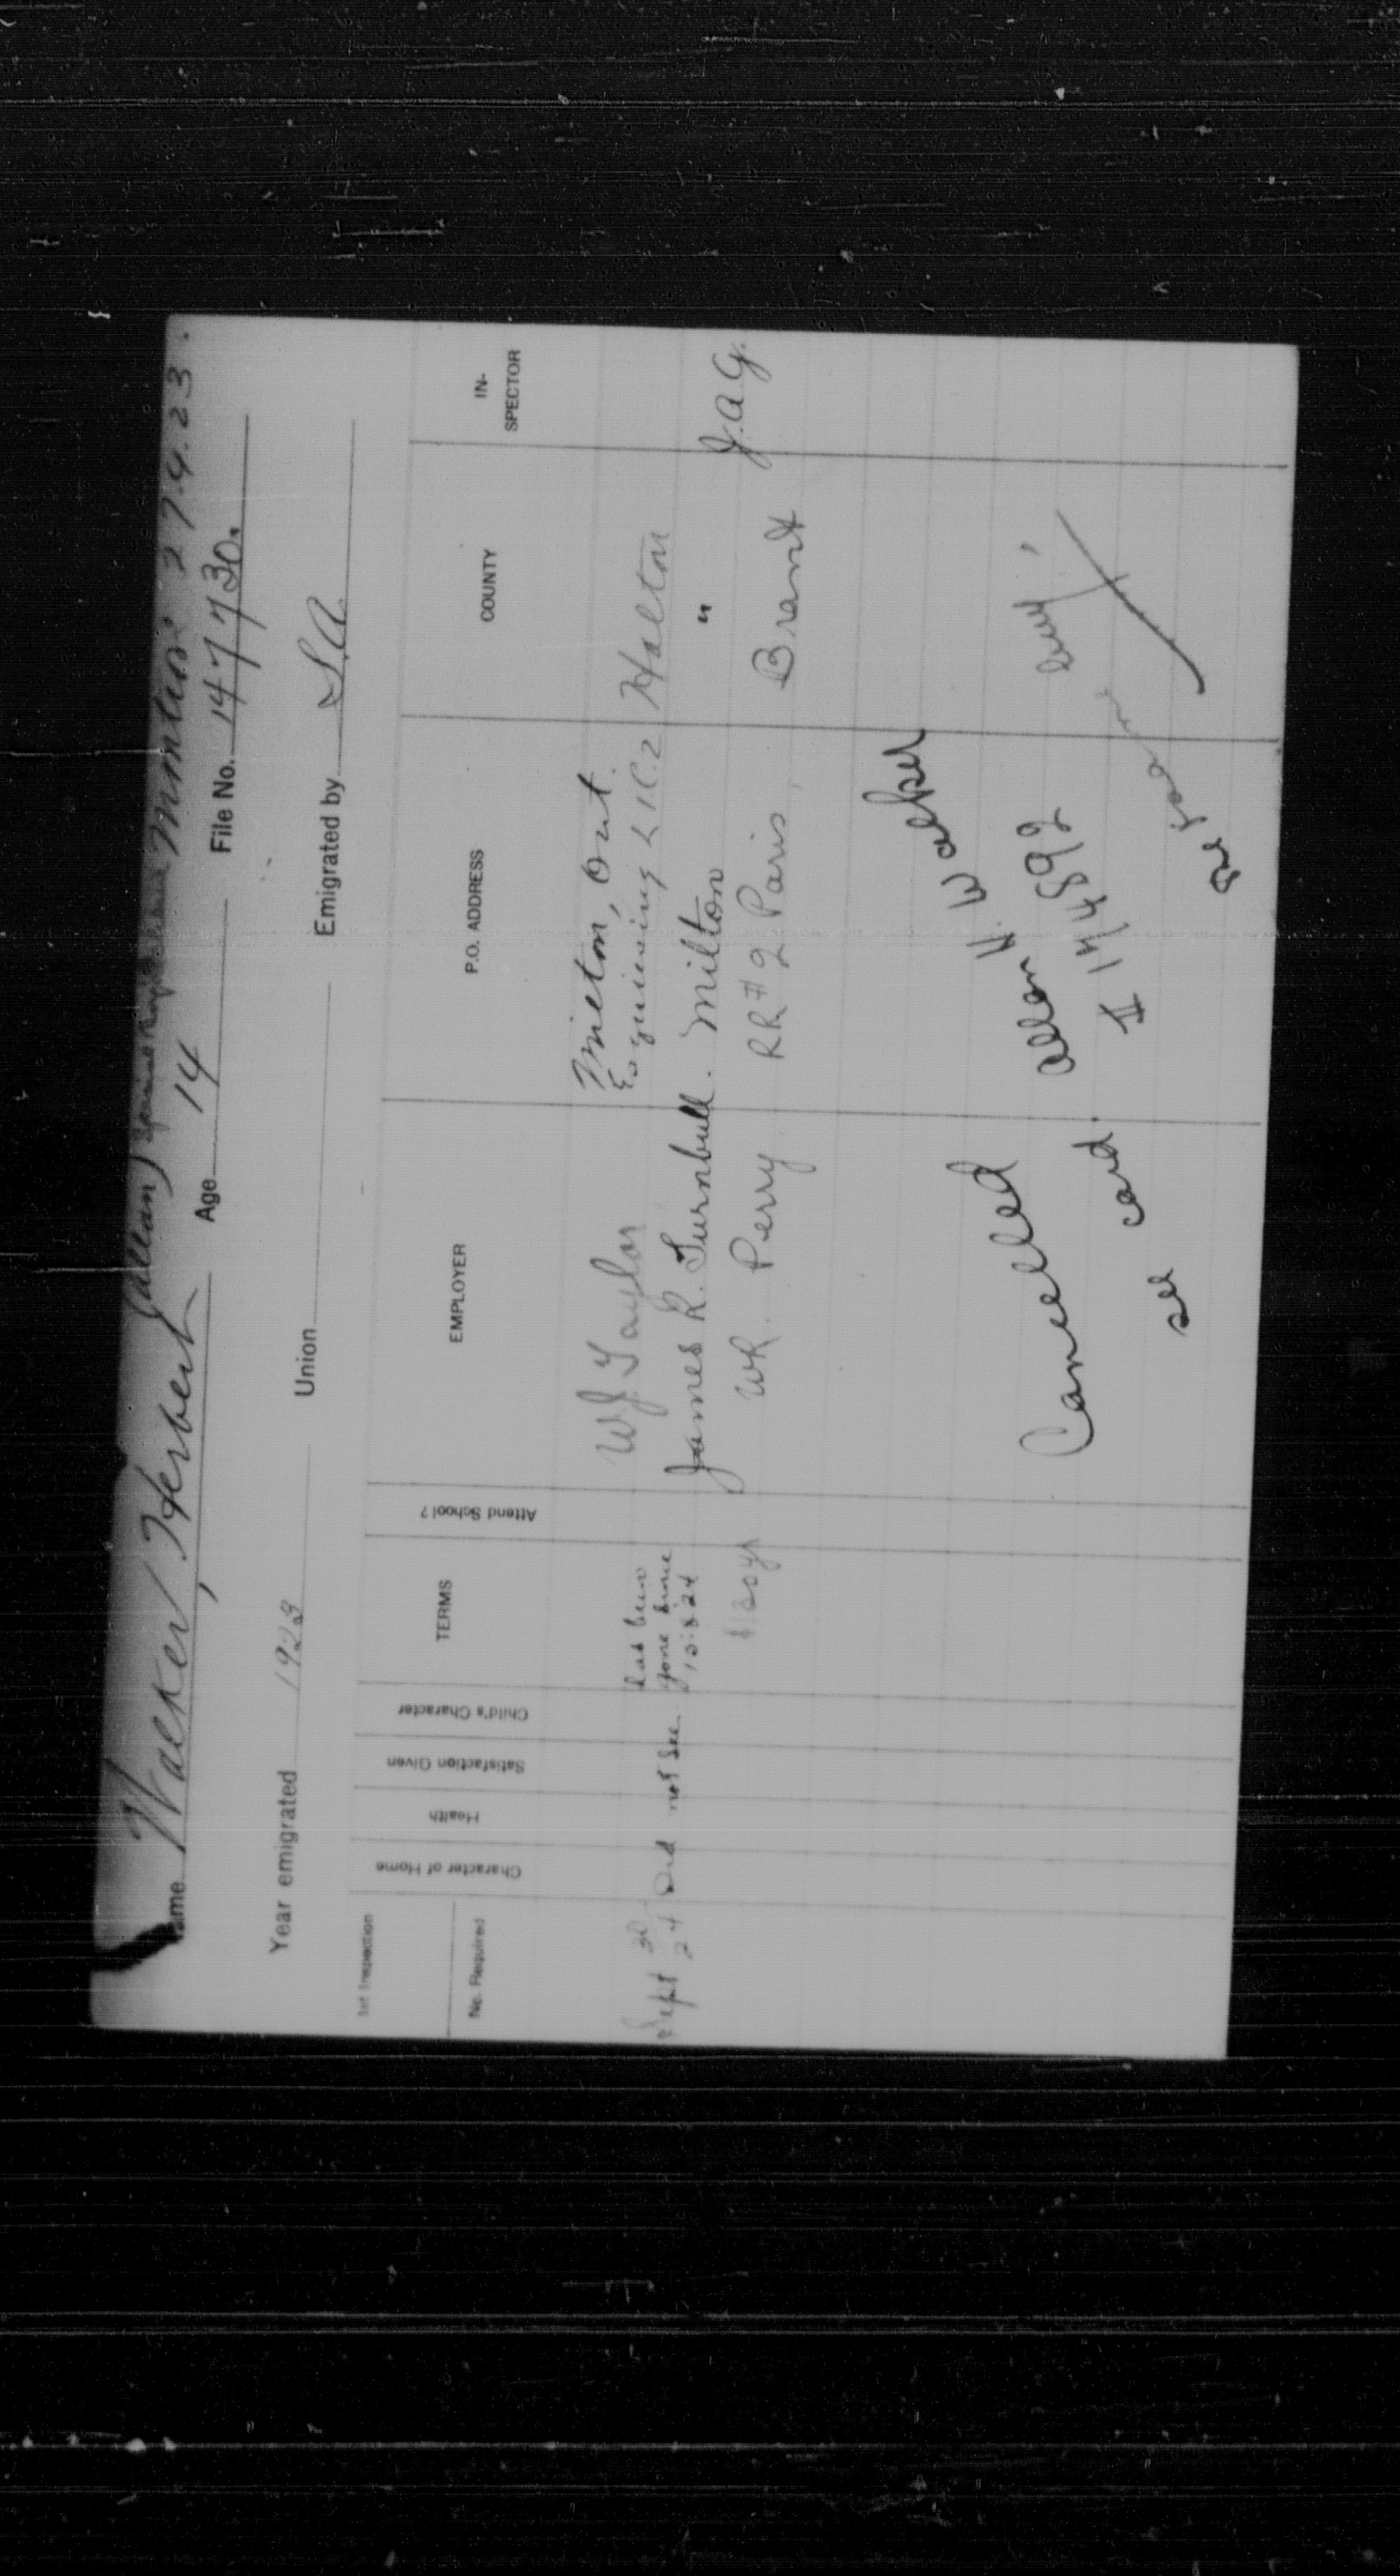 (allan) Minnedosa 27.4.23.
Name Walker, Herbert Age 14 File No. 147730.
Year emigrated 1923 Union Emigrated by S.A.
1st Inspection
No. Required Character of Home Health Satisfaction Given Child's Character TERMS Attend School? EMPLOYER P.O. ADDRESS COUNTY IN-SPECTOR
W.J. Taylor Milton, Ont.
Esquesing L 1.C.2 Halton
Sept 30 24 Did not see has been gone since 15.8.24 James R. Turnbull. Milton " J.A.G.
W.R. Perry RR #2 Paris, Brant
Cancelled
see card.
Allan H. Walker
II 14/4892